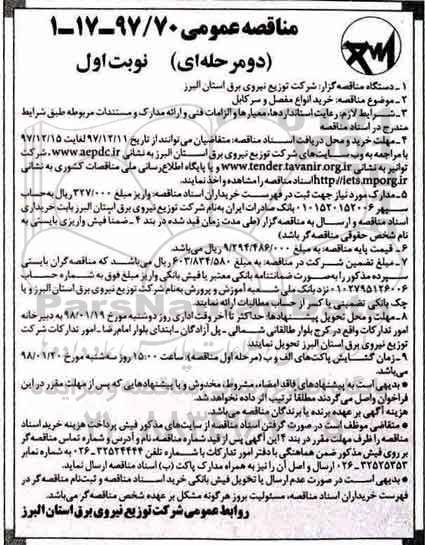 مناقصه عمومی ۹۷/۷۰-۱۷-۱
(دو مرحله‌ای) نوبت اول
۱- دستگاه مناقصه‌گزار: شرکت توزیع نیروی برق استان البرز
۲- موضوع مناقصه: خرید انواع مفصل و سرکابل
۳- شرایط لازم: رعایت استانداردها، معیارها و الزامات فنی و ارائه مدارک و مستندات مربوطه طبق شرایط
مندرج در اسناد مناقصه
۴- مهلت خرید و محل دریافت اسناد مناقصه: متقاضیان می‌توانند از تاریخ ۹۷/۱۲/۱۱ لغایت ۹۷/۱۲/۱۵
با مراجعه به وب سایت‌های شرکت توزیع نیروی برق استان البرز به نشانی www.aepdc.ir، شرکت
توانیر به نشانی www.tender.tavanir.org.ir و یا پایگاه اطلاع‌رسانی ملی مناقصات کشوری به نشانی
http://iets.mporg.ir اسناد مناقصه را مشاهده و اخذ نمایند.
۵- مدارک مورد نیاز جهت ثبت در فهرست خریداران اسناد مناقصه: واریز مبلغ ۳۲۷/۰۰۰ ریال به حساب
سپهر ۰۱۰۱۵۲۰۱۵۲۰۰۶ بانک صادرات ایران به نام شرکت توزیع نیروی برق استان البرز بابت خریداری
اسناد مناقصه و ارسال به مناقصه گزار (طی مدت زمان قید شده در بند ۴ - ضمناً فیش واریزی بایستی به
نام شخص حقوقی مناقصه‌گر باشد)
۶- قیمت پایه مناقصه: به مبلغ ۹/۲۹۴/۴۸۶/۰۰۰ ریال می‌باشد.
۷- مبلغ تضمین شرکت در مناقصه: به مبلغ ۶۰۳/۸۳۴/۵۸۰ ریال می‌باشد که مناقصه گران بایستی
سپرده مذکور را به‌صورت ضمانتنامه بانکی معتبر یا فیش بانکی واریز مبلغ فوق به شماره حساب
۰۱۰۲۷۹۵۱۲۶۰۰۶ نزد بانک ملی شعبه آموزش و پرورش به‌نام شرکت توزیع نیروی برق استان البرز و یا
چک بانکی تضمینی یا کسر از حساب مطالبات ارائه نمایند.
۸- مهلت و محل تحویل پیشنهادها: حداکثر تا آخر وقت اداری روز دوشنبه مورخ ۹۸/۰۱/۱۹ به دبیرخانه
امور تدارکات واقع در کرج بلوار طالقانی شمالی - پل آزادگان - ابتدای بلوار امام رضا - امور تدارکات شرکت
توزیع نیروی برق استان البرز تحویل نمایند.
۹- زمان گشایش پاکت‌های الف و ب (مرحله اول مناقصه): ساعت ۱۵:۰۰ روز سه‌شنبه مورخ ۹۸/۰۱/۲۰
می‌باشد.
• بدیهی است به پیشنهادهای فاقد امضاء، مشروط، مخدوش و یا پیشنهادهایی که پس از مهلت مقرر در این
فراخوان واصل می‌گردند مطلقاً ترتیب اثر داده نخواهد شد.
هزینه آگهی بر عهده برنده یا برندگان مناقصه می‌باشد.
• متقاضی موظف است در صورت گرفتن اسناد مناقصه از سایت‌های مذکور فیش پرداخت هزینه خرید اسناد
مناقصه را ظرف مهلت مقرر در بند ۴ این آگهی پس از قید شماره مناقصه، نام و آدرس و شماره تماس مناقصه‌گر
بر روی فیش مذکور ضمن هماهنگی با دفتر امور تدارکات با شماره تلفن ۳۲۵۲۴۴۴۴-۰۲۶ به شماره نمابر
۳۲۵۲۵۳۵۳-۰۲۶ ارسال و اصل آن را نیز به همراه مدارک پاکت (ب) اسناد مناقصه ارسال نماید.
• بدیهی است در صورت عدم ارسال یا تحویل فیش بانکی خرید اسناد مناقصه و ثبت‌نام مناقصه‌گر در
فهرست خریداران اسناد مناقصه، مسئولیت بروز هرگونه مشکل بر عهده شخص مناقصه‌گر می‌باشد.
روابط عمومی شرکت توزیع نیروی برق استان البرز